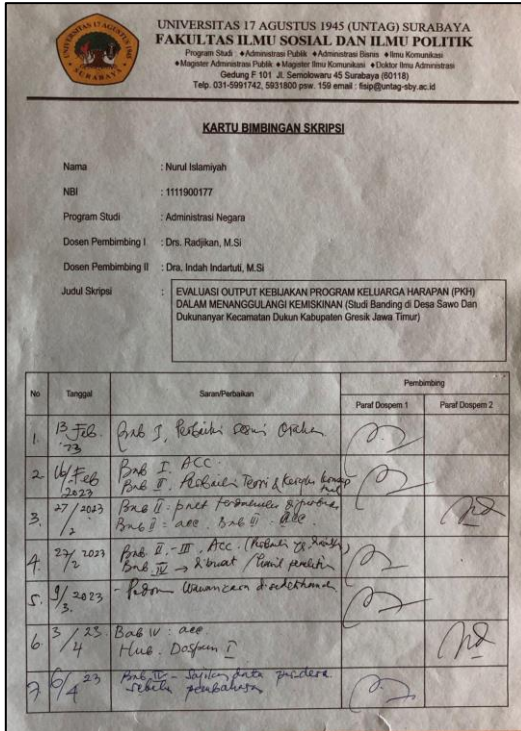 UNIVERSITAS 17 AGUSTUS 1945 (UNTAG) SURABAYA
FAKULTAS ILMU SOSIAL DAN ILMU POLITIK
Program Studi : ♦Administrasi Publik ♦Administrasi Bisnis ♦Ilmu Komunikasi
♦Magister Administrasi Publik ♦Magister Ilmu Komunikasi ♦Doktor Ilmu Administrasi
Gedung F 101 Jl. Semolowaru 45 Surabaya (60118)
Telp. 031-5991742, 5931800 psw. 159 email : fisip@untag-sby.ac.id
KARTU BIMBINGAN SKRIPSI
Nama : Nurul Islamiyah
NBI : 1111900177
Program Studi : Administrasi Negara
Dosen Pembimbing I : Drs. Radjikan, M.Si
Dosen Pembimbing II : Dra. Indah Indartuti, M.Si
Judul Skripsi : EVALUASI OUTPUT KEBIJAKAN PROGRAM KELUARGA HARAPAN (PKH)
DALAM MENANGGULANGI KEMISKINAN (Studi Banding di Desa Sawo Dan
Dukunanyar Kecamatan Dukun Kabupaten Gresik Jawa Timur)
No Tanggal Saran/Perbaikan Pembimbing
Paraf Dospem 1 Paraf Dospem 2
1. 13 Feb Bab I, Perbaiki sesuai
2. 16/Feb 2023 Bab I. ACC.
Bab II. Perbaiki Teori &
3. 27/2 2023 Bab II
Bab II : acc. Bab III acc.
4. 27/2 2023 Bab II - III, Acc.
Bab IV → dibuat hasil penelitian
5. 9/3. 2023 - Wawancara
6. 3/4 23. Bab IV : acc
Hub. Dospem I
7. 6/4 23 Bab IV - Sajikan data
pembahasan